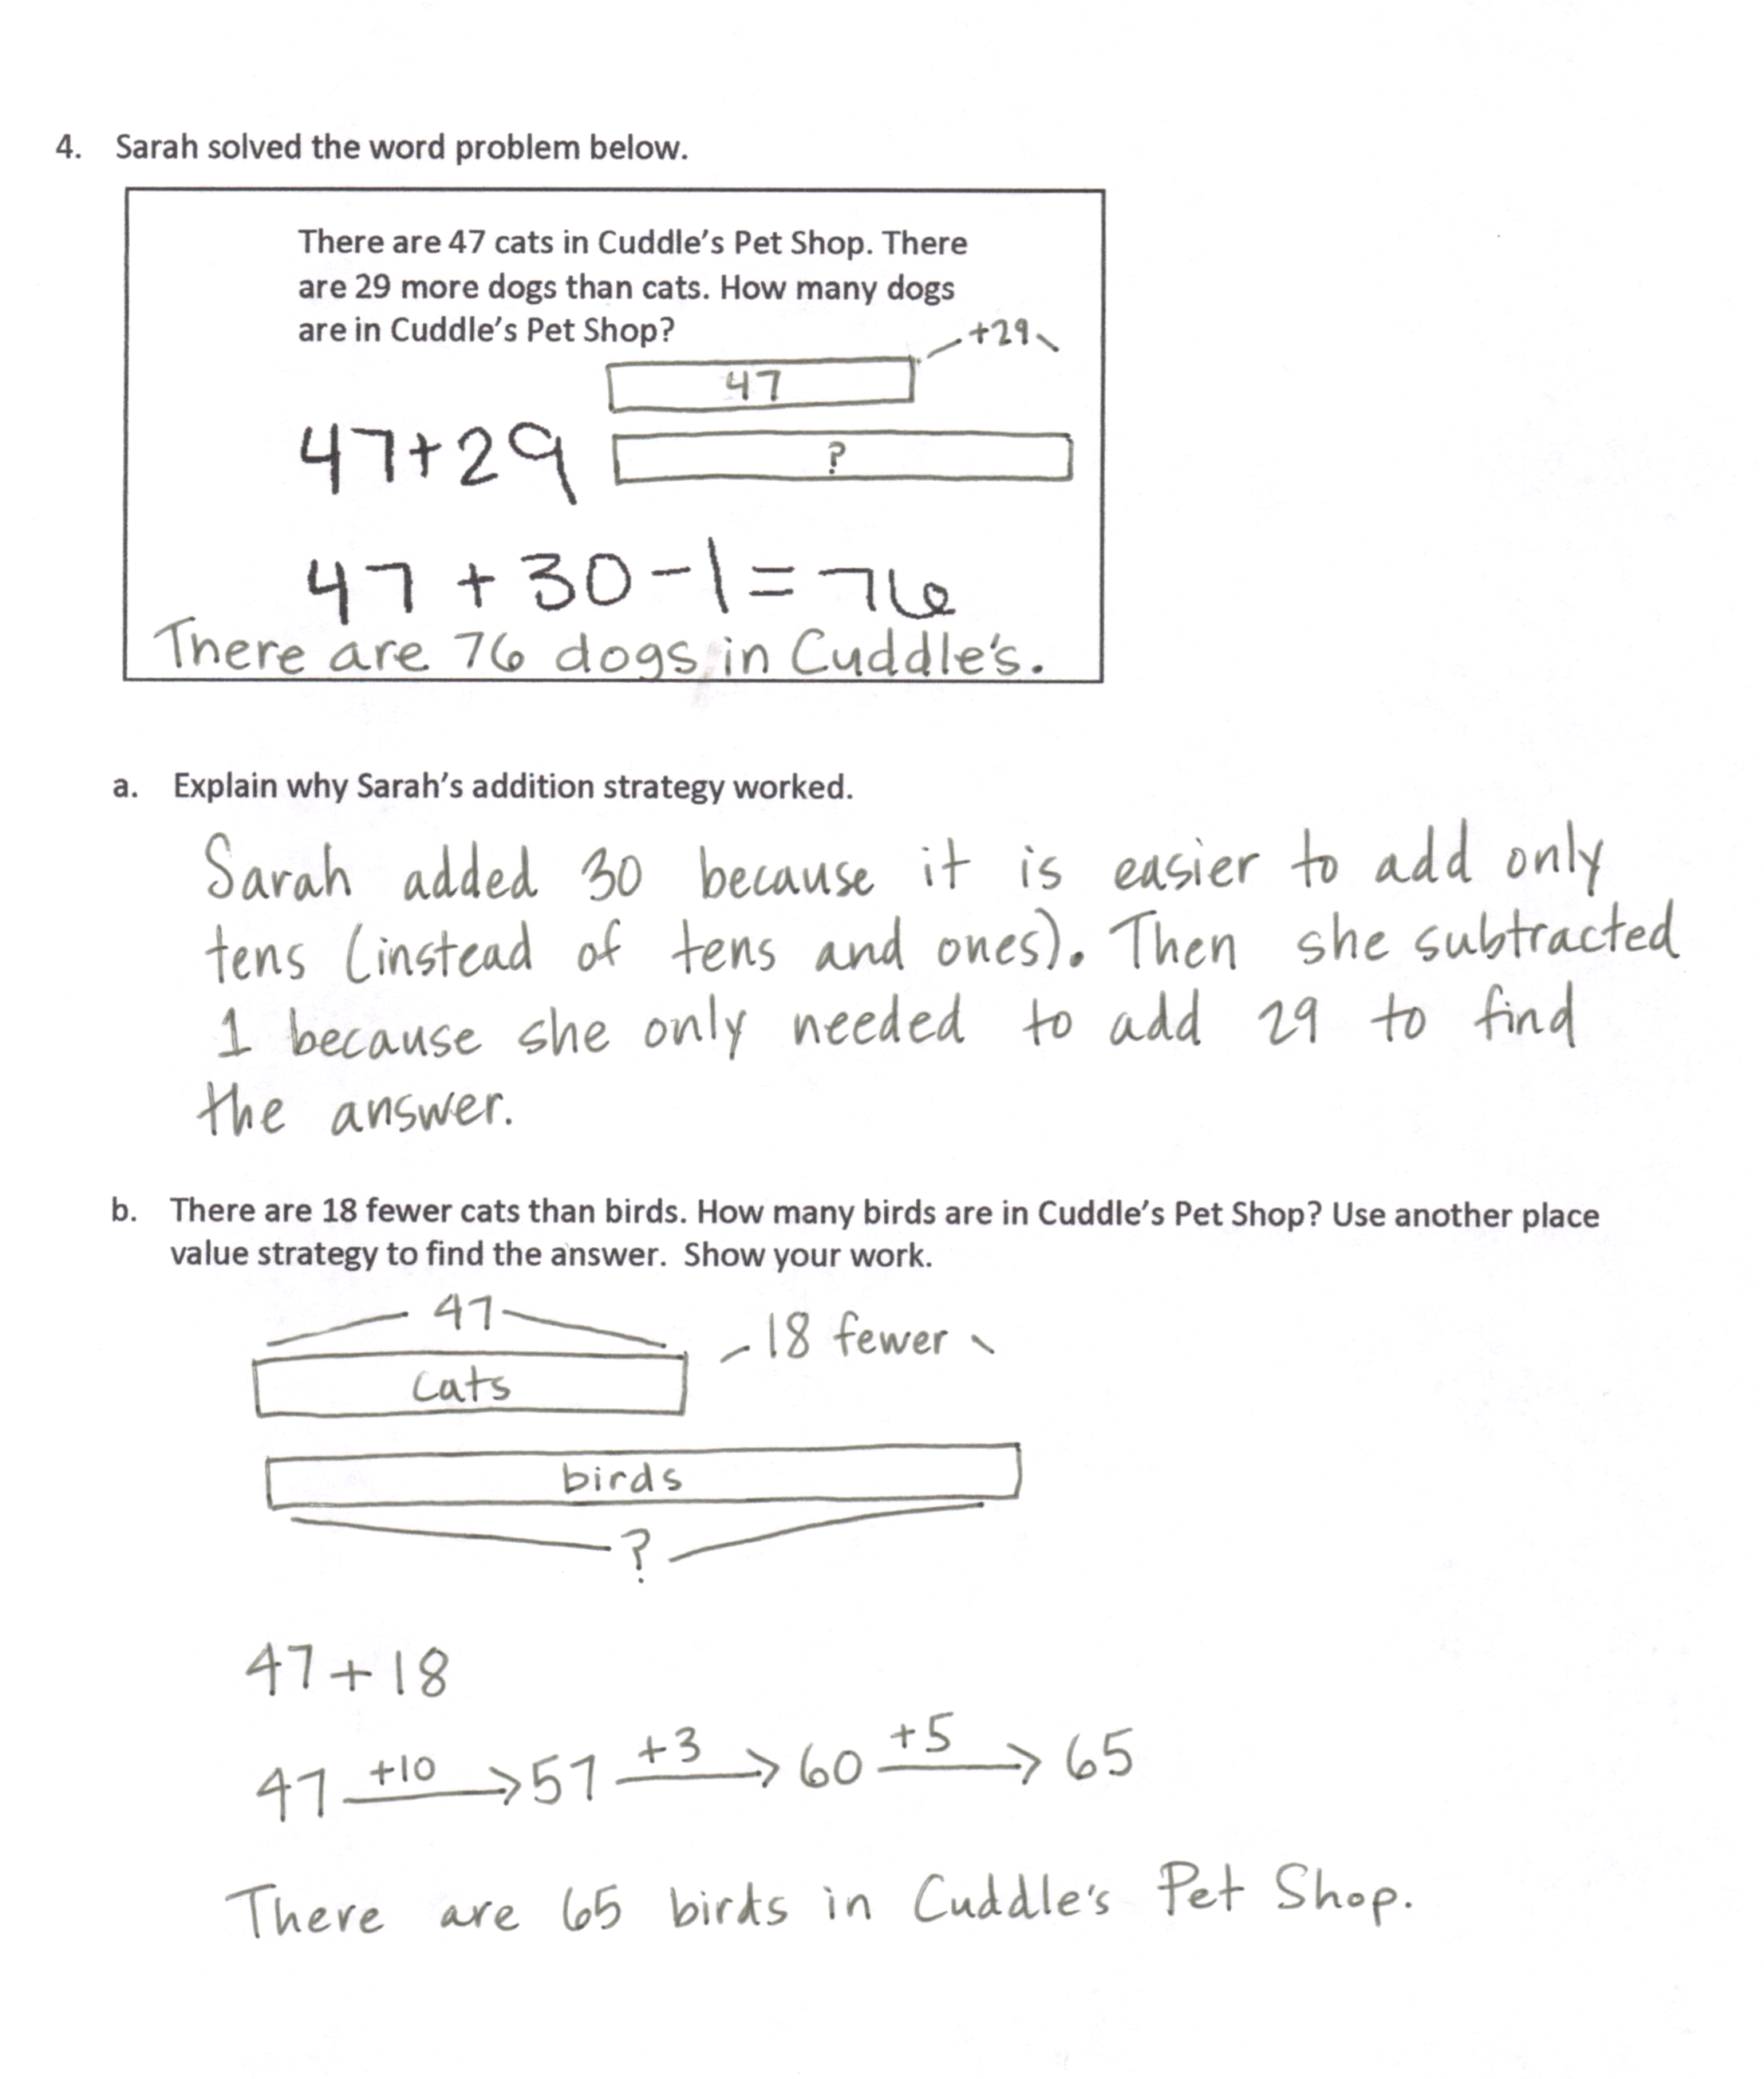 4. Sarah solved the word problem below.
There are 47 cats in Cuddle's Pet Shop. There
are 29 more dogs than cats. How many dogs
are in Cuddle's Pet Shop?
+29
47
47+29
?
47 + 30 - 1 = 76
There are 76 dogs in Cuddle's.
a. Explain why Sarah's addition strategy worked.
Sarah added 30 because it is easier to add only
tens (instead of tens and ones). Then she subtracted
1 because she only needed to add 29 to find
the answer.
b. There are 18 fewer cats than birds. How many birds are in Cuddle's Pet Shop? Use another place
value strategy to find the answer. Show your work.
47
18 fewer
cats
birds
?
47+18
47 +10 → 57 +3 → 60 +5 → 65
There are 65 birds in Cuddle's Pet Shop.